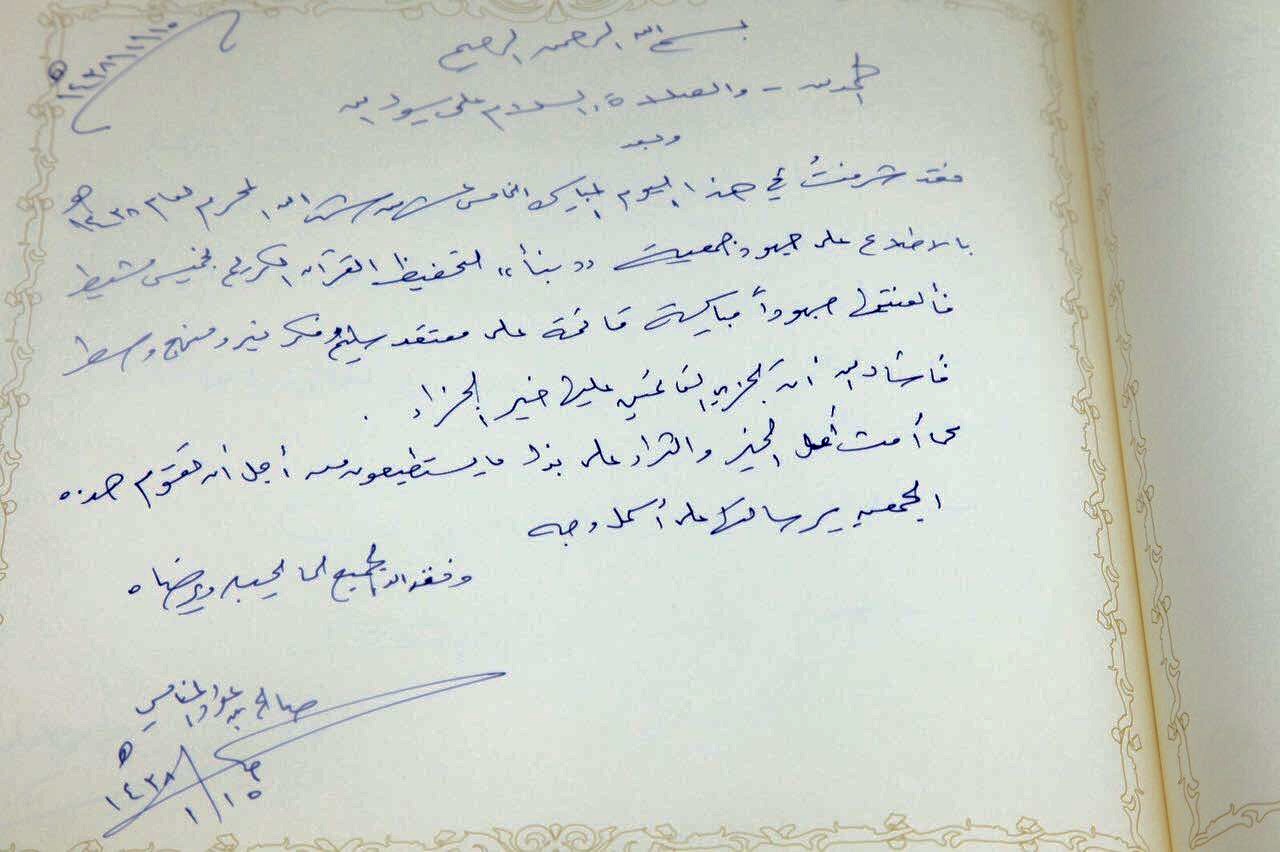 ١٤٣٨/١/١٥ هـ
بسم الله الرحمن الرحيم
الحمد لله - والصلاة والسلام على رسول الله
وبعد
فقد شرفتُ في هذا اليوم المبارك الخامس عشر من شهر الله المحرم لعام ١٤٣٨ هـ
بالاطلاع على جهود جمعية "نبأ" لتحفيظ القرآن الكريم بخميس مشيط
فألفيتها جهوداً مباركة قائمة على معتقد سليم وفكر نير ومنهج وسط
فأسأل الله أن يجزي القائمين عليها خير الجزاء .
كما أحث أهل الخير والثراء على بذل ما يستطيعون من أجل أن تقوم هذه
الجمعية برسالتها على أكمل وجه
وفق الله الجميع لما يحبه ويرضاه
صالح بن عواد المغامسي
١٤٣٨/١/١٥ هـ